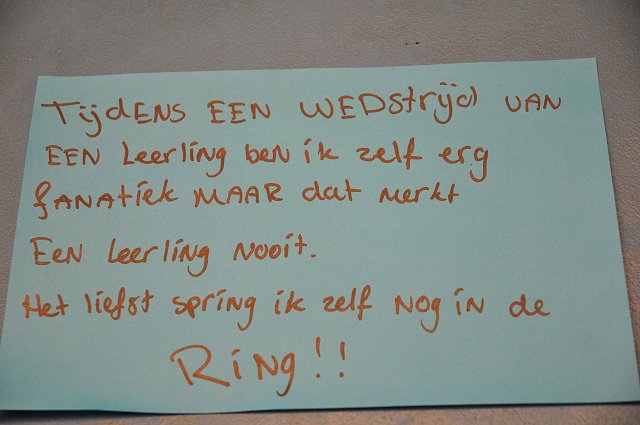 TijdENS EEN WEDstrijd VAN
EEN Leerling ben ik zelf erg
fANAtiek MAAR dat merkt
EeN leerling Nooit.
Het liefst spring ik zelf Nog in de
RiNg!!